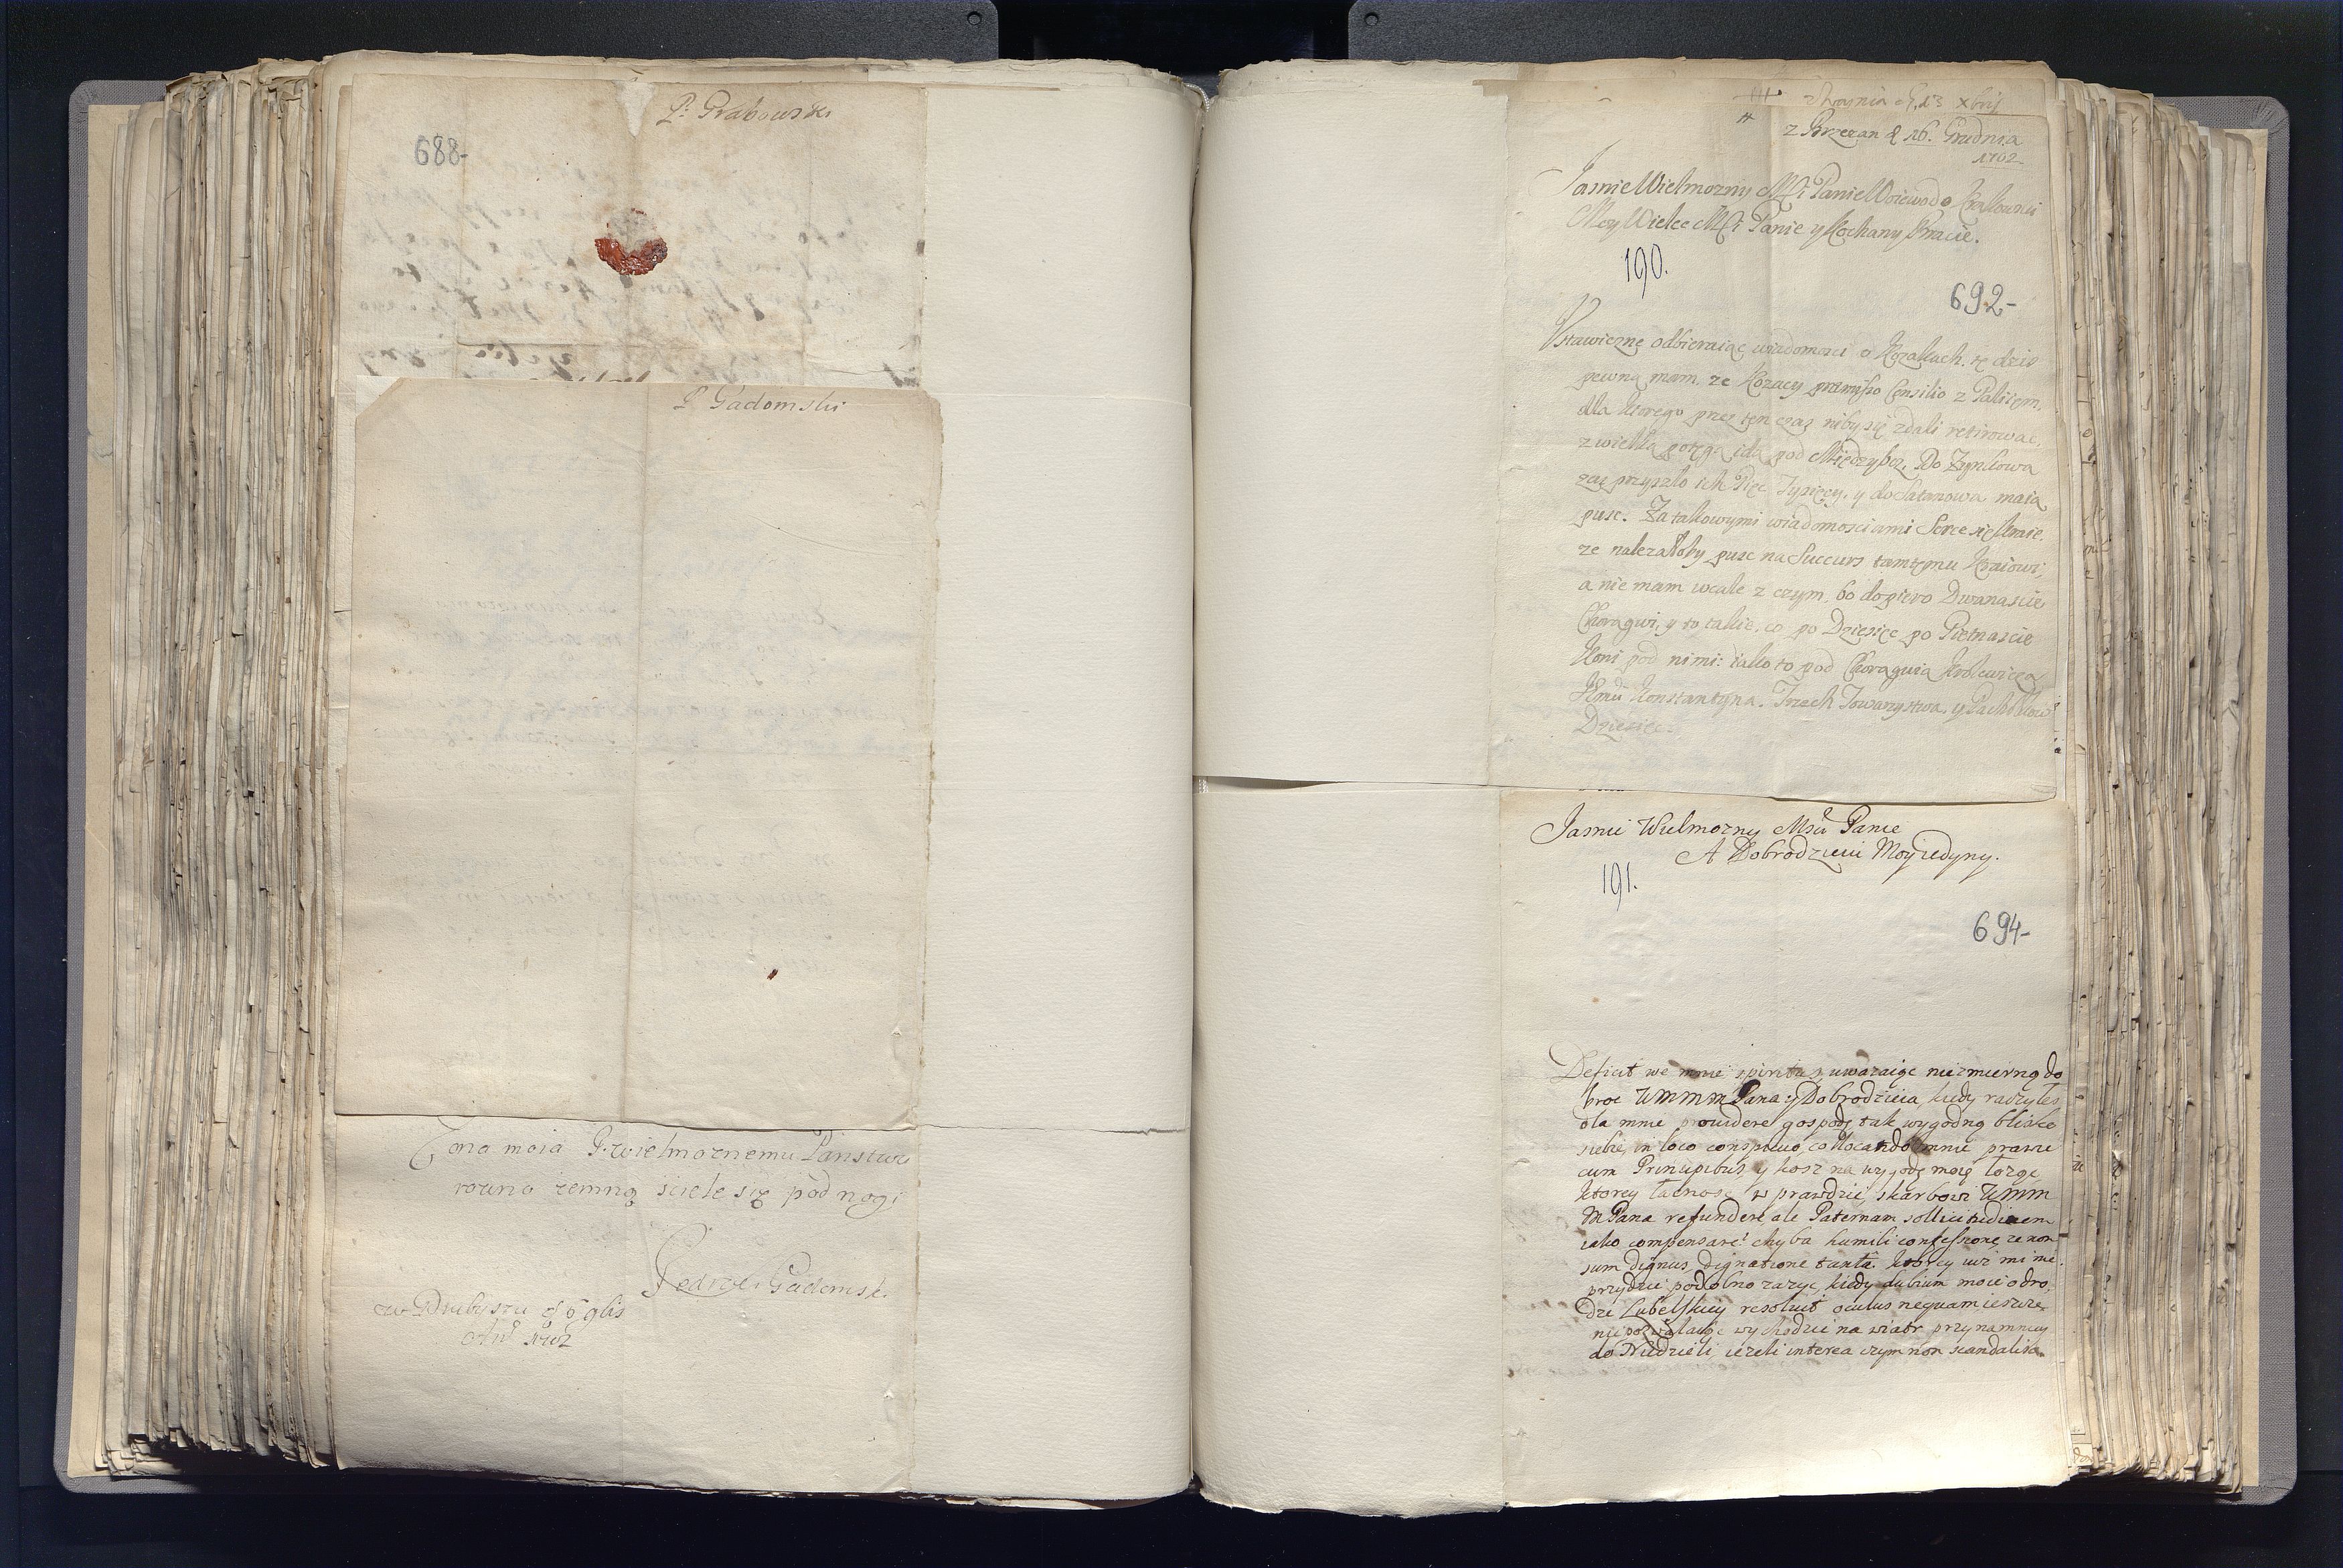 P. Grabowski
688-
P. Gadomski
Zona moia J. wielmoznemu Panstwu
rowno zemną sciele się pod nogi
Jędrzei Gadomsk.
w Drubyszu d 6 9bris
1702
z Brzezan d 16. Grudnia
1702
Jasnie Wielmozny Mći Panie Woiewodo Krakowski
Moy Wielce Mći Panie y Kochany Bracie.
190.
692-
Vstawicznę odbieraiąc wiadomosci o Kozakach. tę dziś
pewną mam, ze Kozacy præmisso Consilio z Palijem,
dla ktorego przez ten czas niby się zdali retirowac,
z wielką potęgą idą pod Międzybuz, Do Zynkowa
zaś przyszło ich Pięc Tysięcy, y do Satanowa maią
pusc. Za takowymi wiadomosciami Serce się kraie,
ze nalezałoby pusc na Succurs tamtemu Kraiowi,
a nie mam wcale z czym, bo dopiero Dwanascie
Chorągwi, y to takie, co po Dziesięc po Pietnascie
Koni pod nimi: iako to pod Chorągwią Krolewica
Jmci Konstantyna. Trzech Towarzystwa, y Pachołkow
Dziesięc.
Jasnie Wielmozny Msci Panie
A Dobrodzieiu Moy iedyny.
191.
694-
Deficit we mnie spiritus, uwazaiąc niezmierną do
broc WMMM Pana y Dobrodzieia, kiedy raczyłes
dla mnie providere gospodę tak wygodną blisko
siebie, in loco conspicuo, collocando mnie prawie
cum Principibus, y koszt na wygodę moię łozyc,
ktorey łacnosc w prawdzie, skarbowi WMM
M Pana refundere, ale Paternam sollicitudinem
iako compensare? chyba humili confessione, ze non
sum dignus, dignatione tanta. ktorey iuz mi nie
przydzie podobno zazyc, kiedy dubium moie o dro,
dze Lubelskiey resolvit oculus nequam ieszcze
nie pozwalaiąc wychodzic na wiatr przynamniey
do Niedzieli, iezeli interea czym non scandalisa-